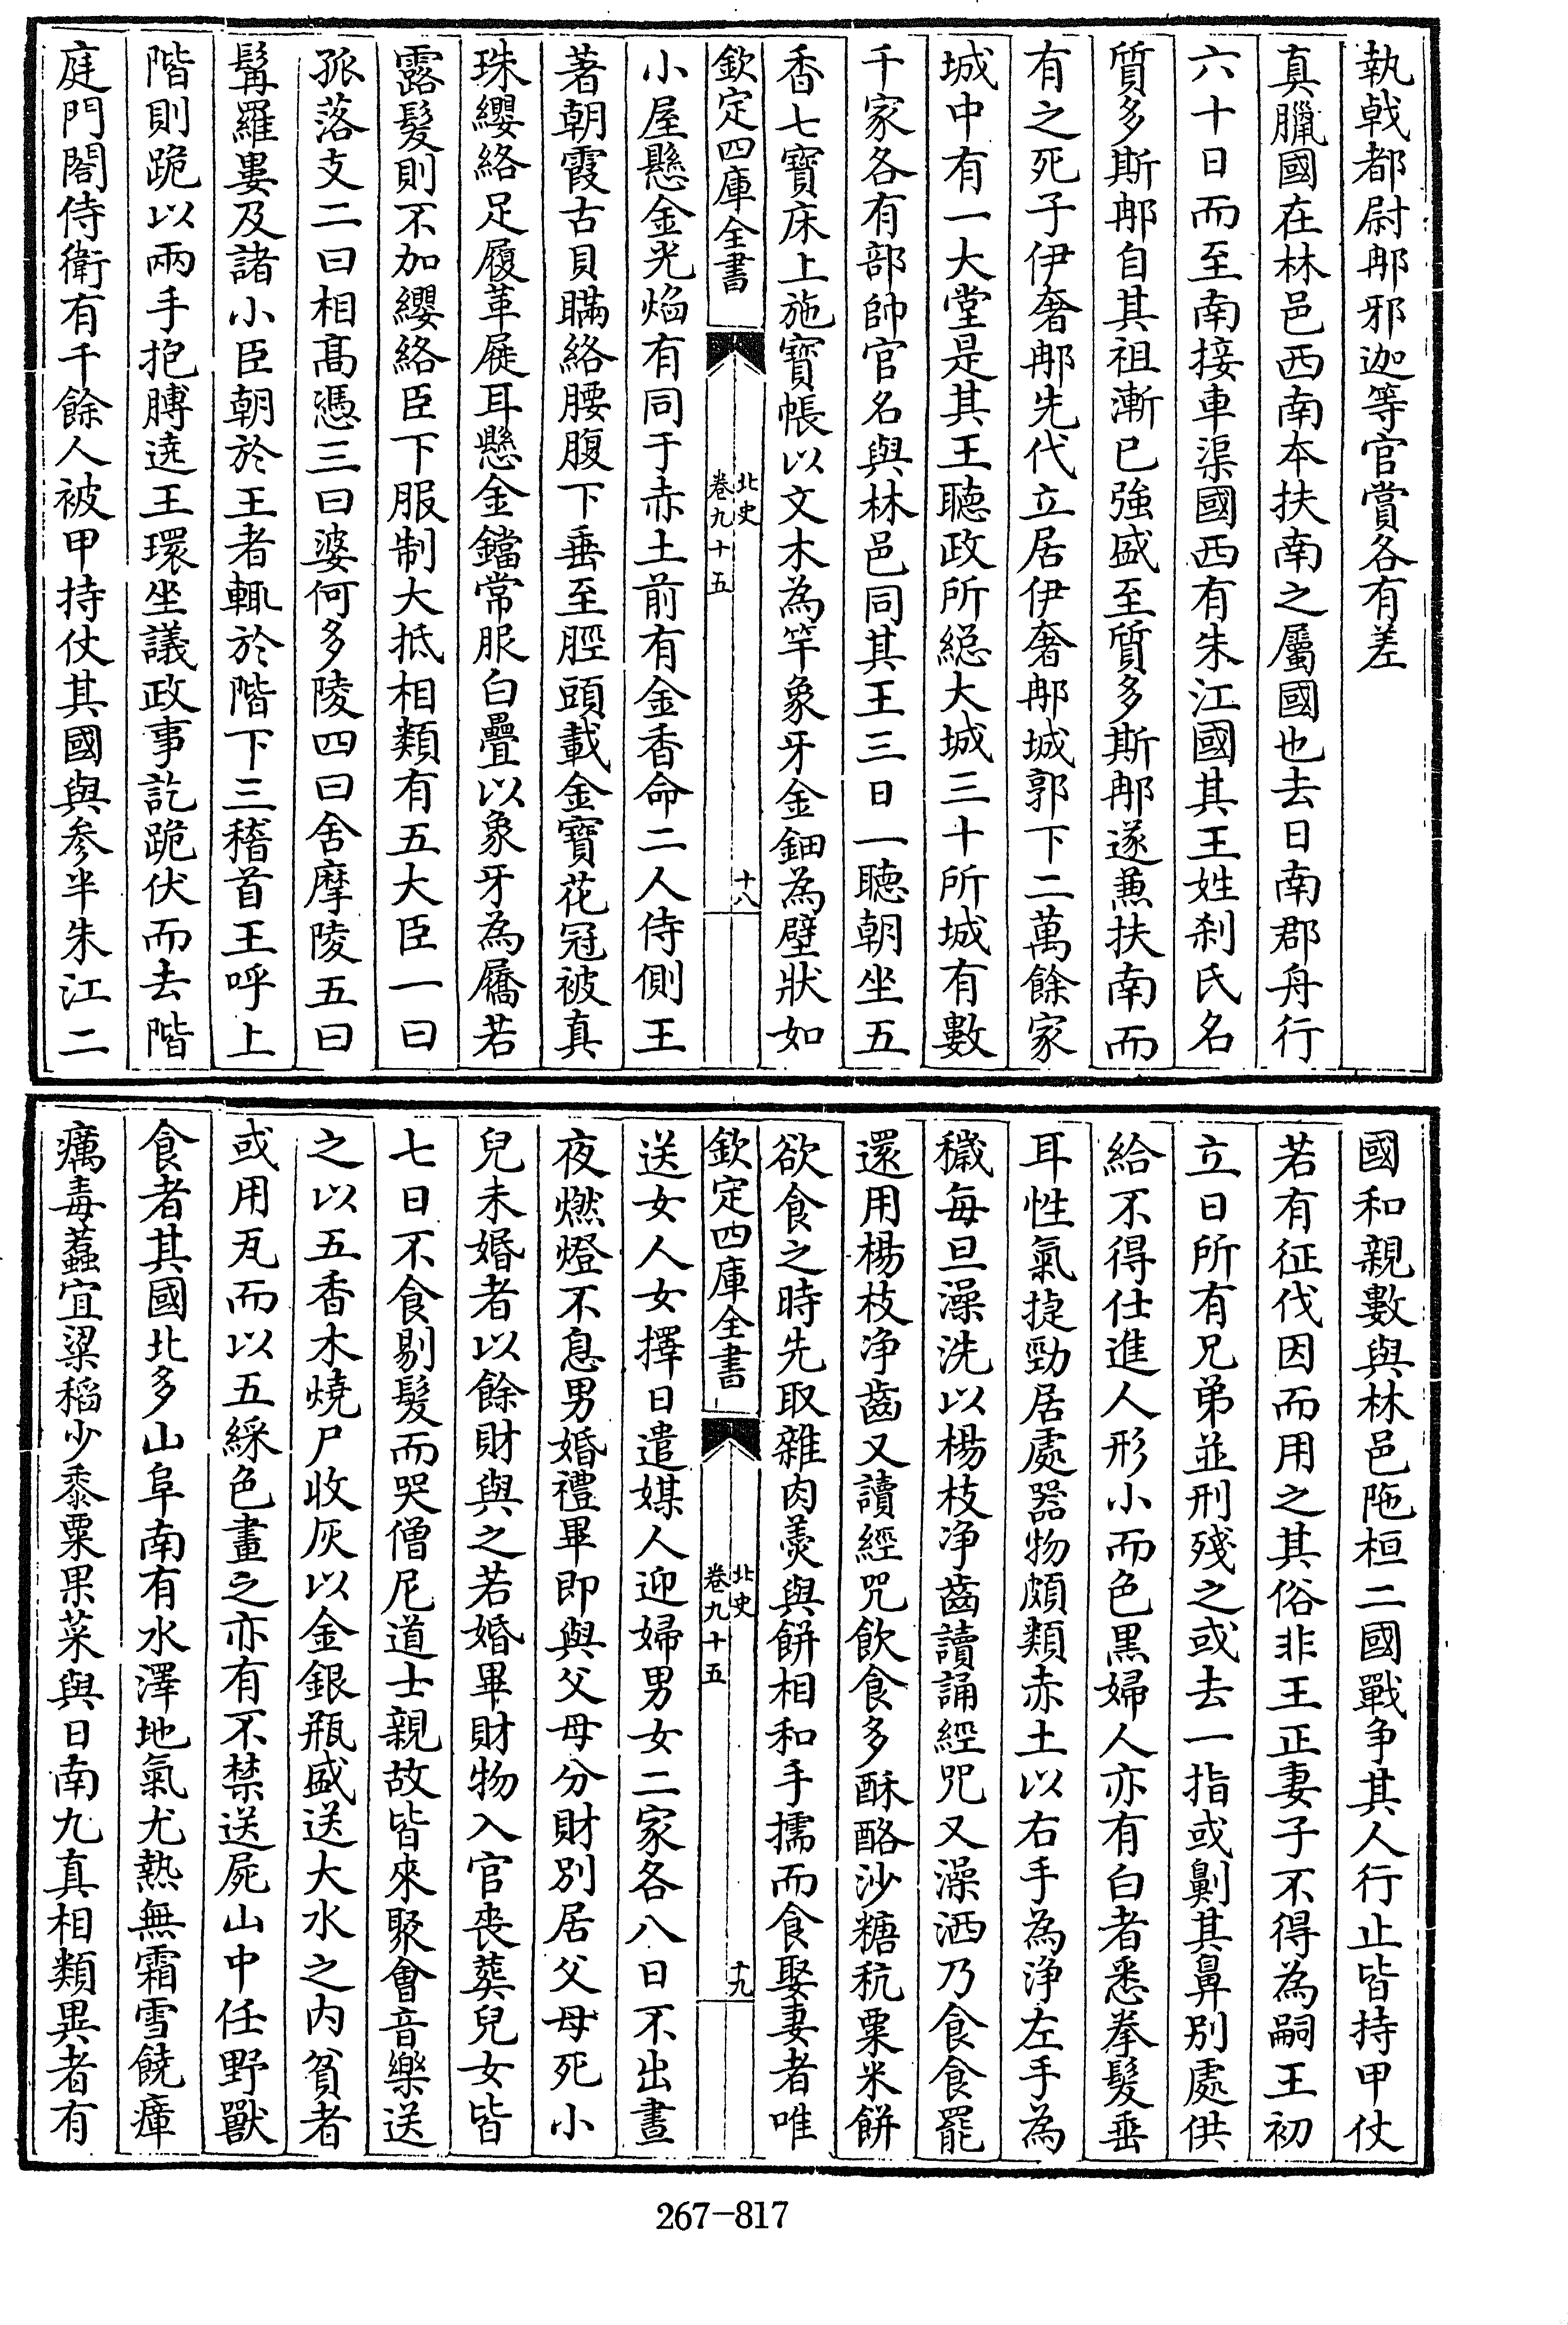 執戟都尉𨙻邪迦等官賞各有差
真臘國在林邑西南本扶南之屬國也去日南郡舟行
六十日而至南接車渠國西有朱江國其王姓刹氏名
質多斯𨙻自其祖漸已強盛至質多斯𨙻遂蒹扶南而
有之死子伊奢𨙻先代立居伊奢𨙻城郭下二萬餘家
城中有一大堂是其王聽政所緫大城三十所城有數
千家各有部帥官名與林邑同其王三日一聽朝坐五
香七寶床上施寶帳以文木為竿象牙金鈿為壁狀如
欽定四庫全書
北史
卷九十五
十八
小屋懸金光焰有同于赤土前有金香命二人侍側王
著朝霞古貝瞞絡腰腹下垂至脛頭載金寶花冠被真
珠纓絡足履革屣耳懸金鐺常服白疊以象牙為屩若
露髮則不加纓絡臣下服制大抵相類有五大臣一曰
孤落支二曰相髙憑三曰婆何多陵四曰舍摩陵五曰
髯羅婁及諸小臣朝於王者輒於階下三稽首王呼上
階則跪以兩手抱膊遶王環坐議政事訖跪伏而去階
庭門閤侍衛有千餘人被甲持仗其國與参半朱江二
國和親數與林邑陁桓二國戰争其人行止皆持甲仗
若有征伐因而用之其俗非王正妻子不得為嗣王初
立日所有兄弟並刑殘之或去一指或劓其鼻別處供
給不得仕進人形小而色黒婦人亦有白者悉拳髮垂
耳性氣捷勁居處噐物頗類赤土以右手為浄左手為
穢每旦澡洗以楊枝净齒讀誦經咒又澡洒乃食食罷
還用楊枝净齒又讀經咒飲食多酥酪沙糖秔粟米餅
欲食之時先取雜肉羮與餅相和手擩而食娶妻者唯
欽定四庫全書
北史
卷九十五
十九
送女人女擇日遣媒人迎婦男女二家各八日不出晝
夜燃燈不息男婚禮畢即與父母分財別居父母死小
兒未婚者以餘財與之若婚畢財物入官喪葬兒女皆
七日不食剔髮而哭僧尼道士親故皆來聚會音樂送
之以五香木燒尸收灰以金銀瓶盛送大水之内貧者
或用瓦而以五綵色畫之亦有不焚送屍山中任野獸
食者其國北多山阜南有水澤地氣尤熱無霜雪饒瘴
癘毒蠚宜粱稻少黍粟果菜與日南九真相類異者有
267-817